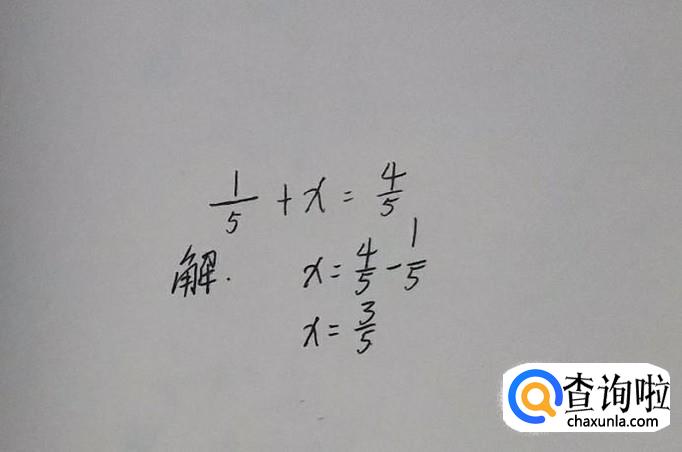 1/5 + x = 4/5
解. x = 4/5 - 1/5
x = 3/5
查询啦
chaxunla.com